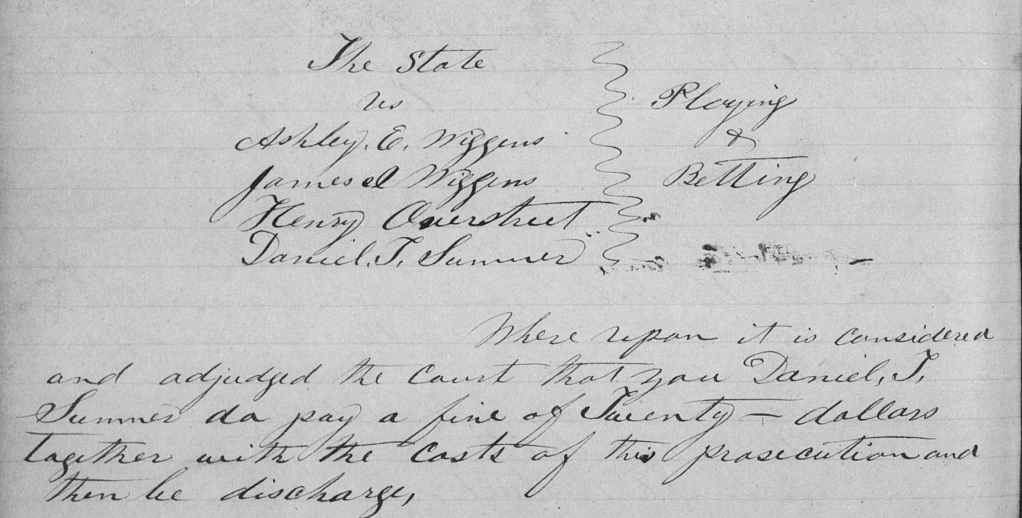 The State
vs
Playing
Ashley. E. Wiggens
&
James Wiggens
Betting
Henry Overstreet
Daniel. T. Summer
Where upon it is considered
and adjudged the Court that you Daniel, T.
Summer do pay a fine of Twenty — dollars
together with the Costs of this prosecution and
then be discharge,